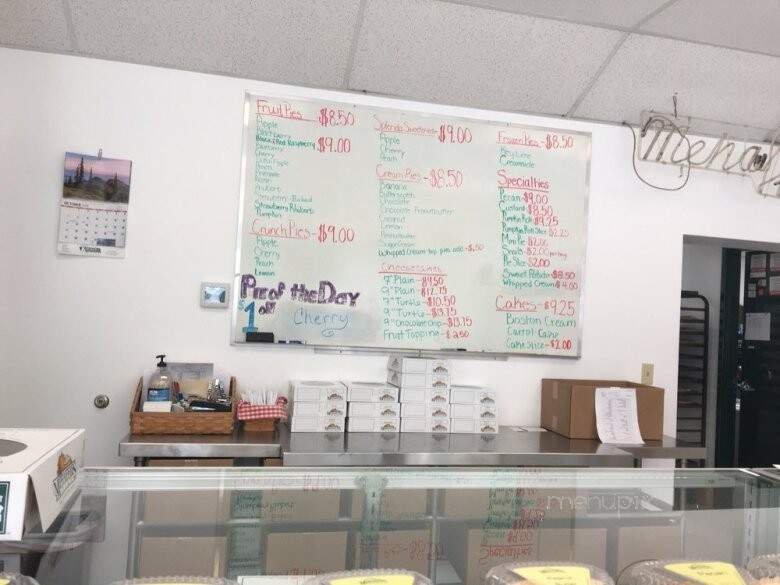 Fruit Pies $8.50
Apple
Blackberry
Black & Red Raspberry $9.00
Blueberry
Cherry
Peach
Pineapple
Raisin
Rhubarb
Strawberry Rhubarb
Pumpkin
Crunch Pies - $9.00
Apple
Cherry
Peach
Lemon
Pie of the Day
$1 off
Cherry
Splenda Sweetened - $9.00
Apple
Cherry
Peach
Cream Pies - $8.50
Banana
Butterscotch
Chocolate
Chocolate Peanutbutter
Coconut
Lemon
Peanutbutter
Sugar Cream
Whipped Cream top pies add - $.50
Cheesecakes
7" Plain - $9.50
9" Plain - $12.75
7" Turtle - $10.50
9" Turtle - $13.75
9" Chocolate Chip - $13.75
Fruit Topping - $2.50
Frozen Pies - $8.50
Key Lime
Creamsicle
Specialties
Pecan - $9.00
Custard - $8.50
Pumpkin Roll - $9.25
Pumpkin Roll Slice $2.25
Mini Pie $2.00
Pie Slice $2.00
Sweet Potato - $8.50
Whipped Cream - $4.00
Cakes - $9.25
Boston Cream
Carrot Cake
Cake Slice - $2.00
OCTOBER
menupix